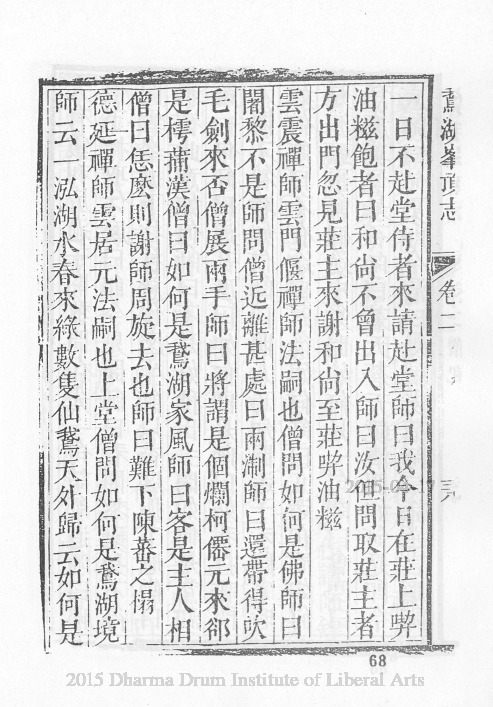 鵞湖峯頂志 卷二
一日不赴堂侍者來請赴堂師曰我今日在莊上喫
油糍飽者曰和尙不曾出入師曰汝但問取莊主者
方出門忽見莊主來謝和尙至莊喫油糍
雲震禪師雲門偃禪師法嗣也僧問如何是佛師曰
闍黎不是師問僧近離甚處曰兩淛師曰還帶得吹
毛劍來否僧展兩手師曰將謂是個爛柯僊元來郤
是樗蒲漢僧曰如何是鵞湖家風師曰客是主人相
僧曰恁麽則謝師周旋去也師曰難下陳蕃之榻
德延禪師雲居元法嗣也上堂僧問如何是鵞湖境
師云一泓湖水春來綠數隻仙鵞天外歸云如何是
68
2015 Dharma Drum Institute of Liberal Arts